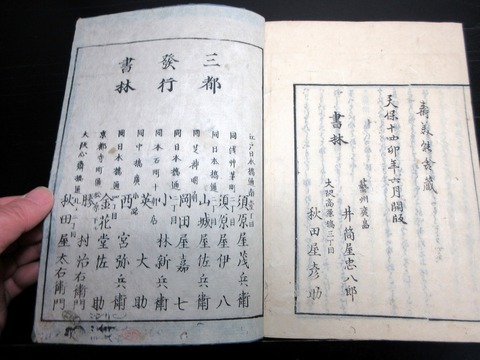 天保十四卯年六月開版
書林
藝州廣嶌
井筒屋忠八郎
大阪高麗橋三丁目
秋田屋彦助
三都
發行
書林
江戸日本橋通南
須原屋茂兵衛
同浅草茅町
須原屋伊八
同日本橋通
山城屋佐兵衛
同芝神明
岡田屋嘉七
同日本橋通
小林新兵衛
同本石町十
英大助
同中橋廣
西宮弥兵衛
同日本橋通
金花堂佐助
京都寺町通
勝村治右衛門
大阪心斎橋通
秋田屋太右衛門